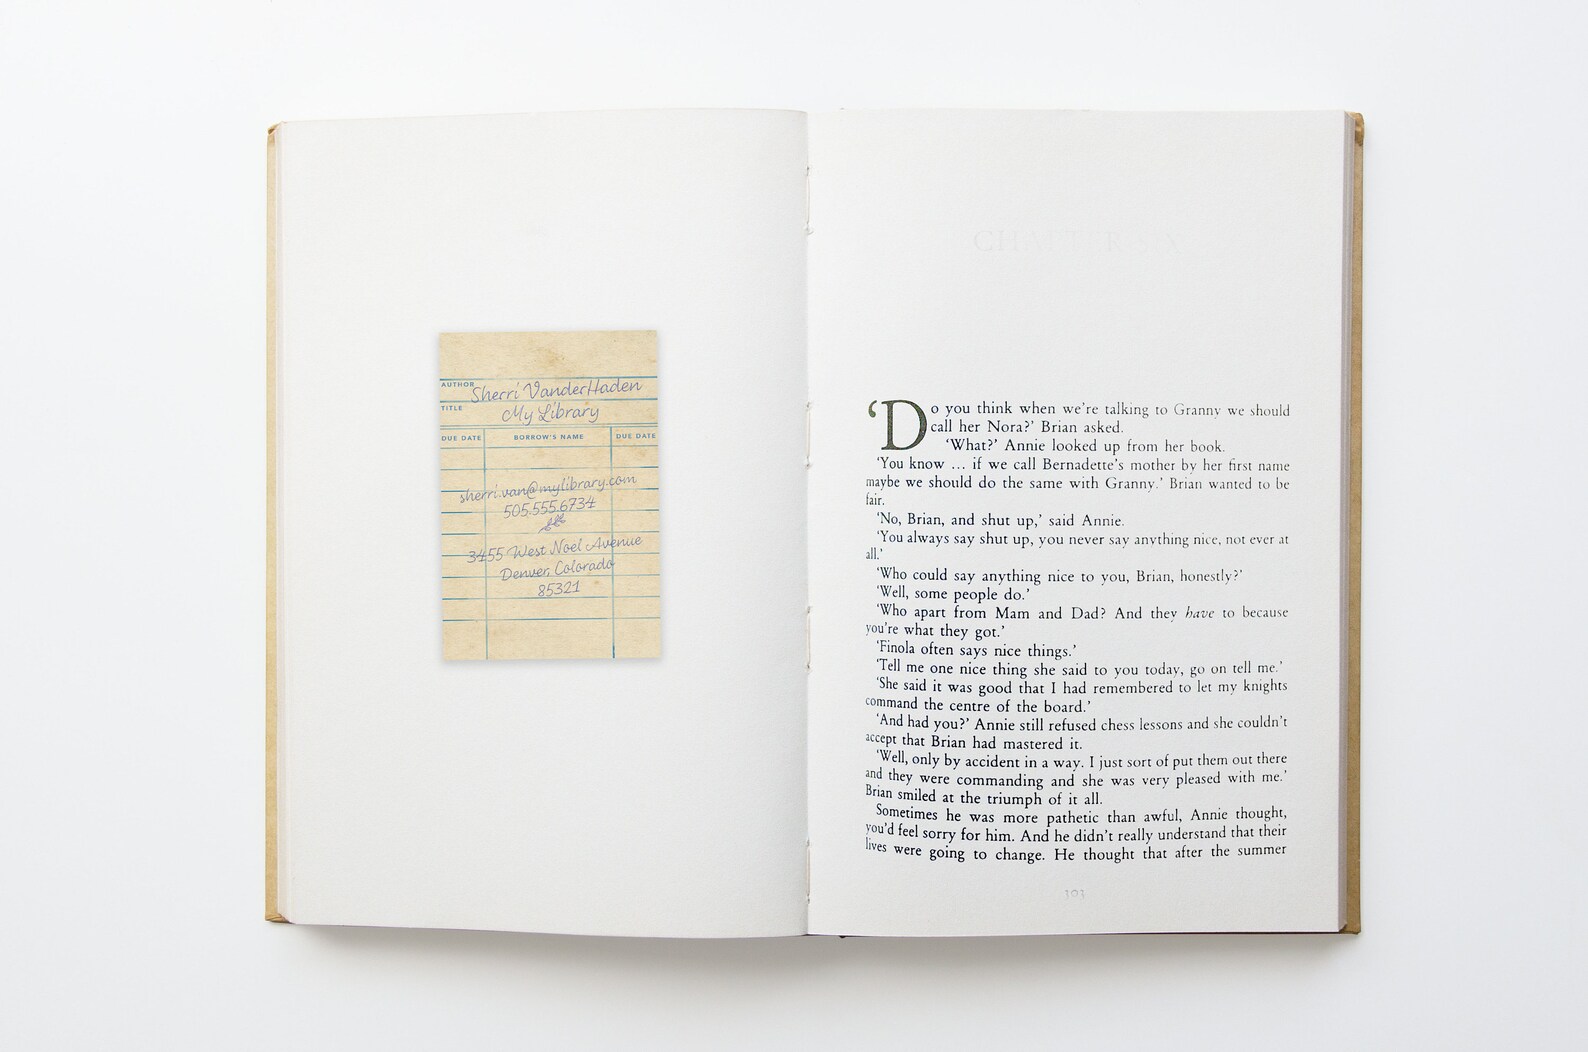 AUTHOR Sherri VanderHaden
TITLE My Library
DUE DATE BORROW'S NAME DUE DATE
sherri.van@mylibrary.com
505.555.6734
3455 West Noel Avenue
Denver, Colorado
85321
‘Do you think when we’re talking to Granny we should
call her Nora?’ Brian asked.
‘What?’ Annie looked up from her book.
‘You know ... if we call Bernadette’s mother by her first name
maybe we should do the same with Granny.’ Brian wanted to be
fair.
‘No, Brian, and shut up,’ said Annie.
‘You always say shut up, you never say anything nice, not ever at
all.’
‘Who could say anything nice to you, Brian, honestly?’
‘Well, some people do.’
‘Who apart from Mam and Dad? And they have to because
you’re what they got.’
‘Finola often says nice things.’
‘Tell me one nice thing she said to you today, go on tell me.’
‘She said it was good that I had remembered to let my knights
command the centre of the board.’
‘And had you?’ Annie still refused chess lessons and she couldn’t
accept that Brian had mastered it.
‘Well, only by accident in a way. I just sort of put them out there
and they were commanding and she was very pleased with me.’
Brian smiled at the triumph of it all.
Sometimes he was more pathetic than awful, Annie thought,
you’d feel sorry for him. And he didn’t really understand that their
lives were going to change. He thought that after the summer